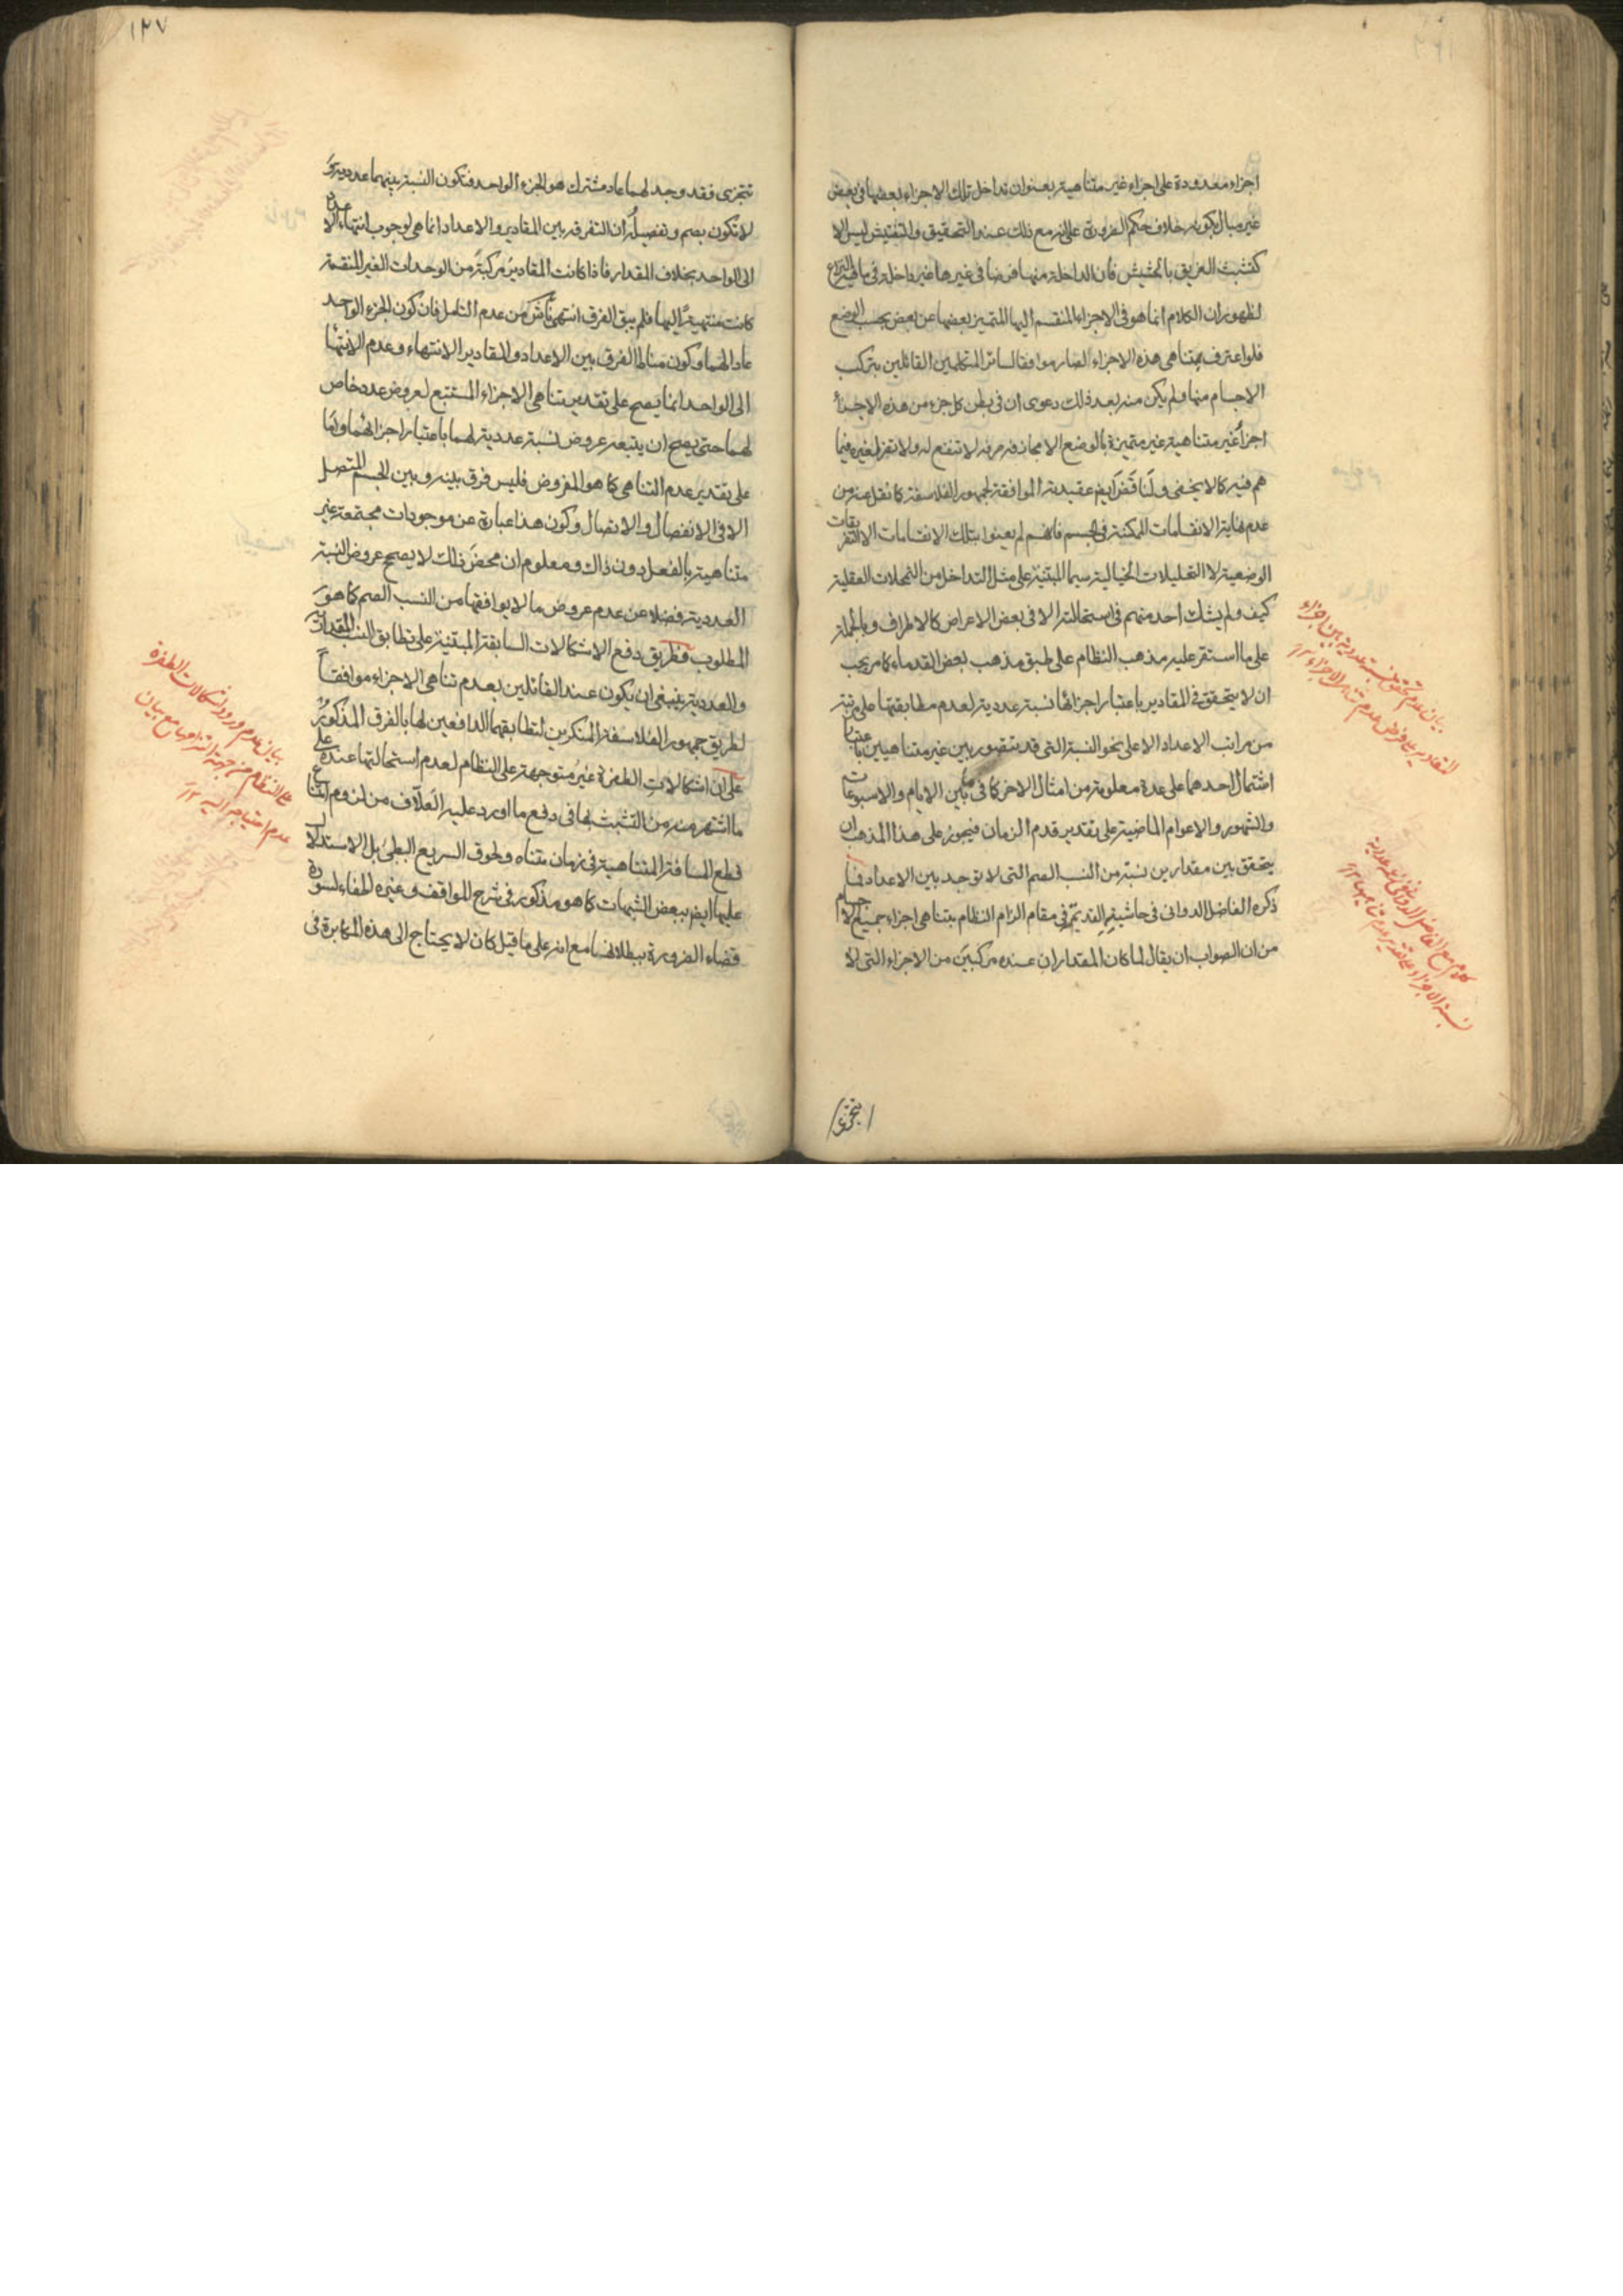 اجزاء معدودة على اجزاء غير متناهية بعنوان تداخل تلك الاجزاء بعضها فى بعض
غير مبال بكونه خلاف حكم الضرورة على انه مع ذلك عند التحقيق والتفتيش ليس الا
كتشبث الغريق بالحشيش فان الداخلة منها فرضا فى غيرها غير داخلة فى ما فيه النزاع
لظهور ان الكلام انما هو فى الاجزاء المنقسم اليها المتميز بعضها عن بعض بحسب الوضع
فلو اعترف بتناهى هذه الاجزاء لصار موافقا لسائر المتكلمين القائلين بتركب
الاجسام منها ولم يكن منه بعد ذلك دعوى ان فى بطن كل جزء من هذه الاجزاء
اجزاء غير متناهية غير متميزة بالوضع الا مجازفة صرفة لا تنفع له ولا تضر لغيره فيما
هم فيه كما لا يخفى ولناقض ايضا عقيدته الموافقة لجمهور الفلاسفة كما نقل عنه من
عدم نهاية الانقسامات الممكنة فى الجسم فانهم لم يعنوا بتلك الانقسامات الا التفريقات
الوضعية لا التحليلات الخيالية سيما المبتنية على مثل التداخل من التمحلات العقلية
كيف ولم يشك احد منهم فى استحالته الا فى بعض الاعراض كالاطراف وبالجملة
على ما استقر عليه مذهب النظام على طبق مذهب بعض القدماء كما مر يجب
ان لا يتحقق فى المقادير باعتبار اجزائها نسبة عددية لعدم مطابقتها على مرتبة
من مراتب الاعداد الا على نحو النسبة التى قد تتصور بين غير متناهيين باعتبار
اشتمال احدهما على عدة معلومة من امثال الاخر كما فى ما بين الايام والاسبوعات
والشهور والاعوام الماضية على تقدير قدم الزمان فيجوز على هذا المذهب ان
يتحقق بين مقدارين نسبة من النسب الصم التى لا توجد بين الاعداد فما
ذكره الفاضل الدوانى فى حاشيته القديمة فى مقام الزام النظام بتناهى اجزاء جميع الاجسام
من ان الصواب ان يقال لما كان المقداران عنده مركبين من الاجزاء التى لا
تتجزى
بيان عدم تحقق نسبة عددية بين اجزاء
المقادير على فرض عدم تناهى الاجزاء ١٢
كلام مع الفاضل الدوانى فى عددية
نسبة الاجزاء على تقدير عدم تناهيها ١٢
١٢٧
تتجزى فقد وجد لهما عاد مشترك هو الجزء الواحد فتكون النسبة بينهما عددية و
لا تكون بصم وتفصيله ان التفرقة بين المقادير والاعداد انما هى لوجوب انتهاء الاعداد
الى الواحد بخلاف المقدار فاذا كانت المقادير مركبة من الوحدات الغير المنقسمة
كانت منتهية اليها فلم يبق الفرق انتهى ناش من عدم التامل فان كون الجزء الواحد
عادا لهما وكون مناط الفرق بين الاعداد والمقادير الانتهاء وعدم الانتهاء
الى الواحد انما يصح على تقدير تناهى الاجزاء المستتبع لعروض عدد خاص
لهما حتى يصح ان يتبعه عروض نسبة عددية لهما باعتبار اجزائهما واما
على تقدير عدم التناهى كما هو المفروض فليس فرق بينه وبين الجسم المتصل
الا فى الانفصال والاتصال وكون هذا عبارة عن موجودات مجتمعة غير
متناهية بالفعل دون ذاك ومعلوم ان محض ذلك لا يصحح عروض النسبة
العددية فضلا عن عدم عروض ما لا يوافقها من النسب الصم كما هو
المطلوب فطريق دفع الاشكالات السابقة المبتنية على تطابق النسب المقدارية
والعددية ينبغى ان يكون عند القائلين بعدم تناهى الاجزاء موافقا
لطريق جمهور الفلاسفة المنكرين لتطابقهما الدافعين لها بالفرق المذكور
على ان اشكالات الطفرة غير متوجهة على النظام لعدم استحالتها عنده على
ما اشتهر منه من التشبث بها فى دفع ما اورد عليه العلاف من لزوم امتناع
قطع المسافة المتناهية فى زمان متناه ولحوق السريع البطىء بل الاستدلال
عليها ايضا ببعض الشبهات كما هو مذكور فى شرح المواقف وغيره اطفاء لسورة
قضاء الضرورة ببطلانها مع انه على ما قيل كان لا يحتاج الى هذه المكابرة فى
بيان عدم ورود اشكالات الطفرة
على النظام من جهة التزامها مع بيان
عدم احتياجه اليه ١٢